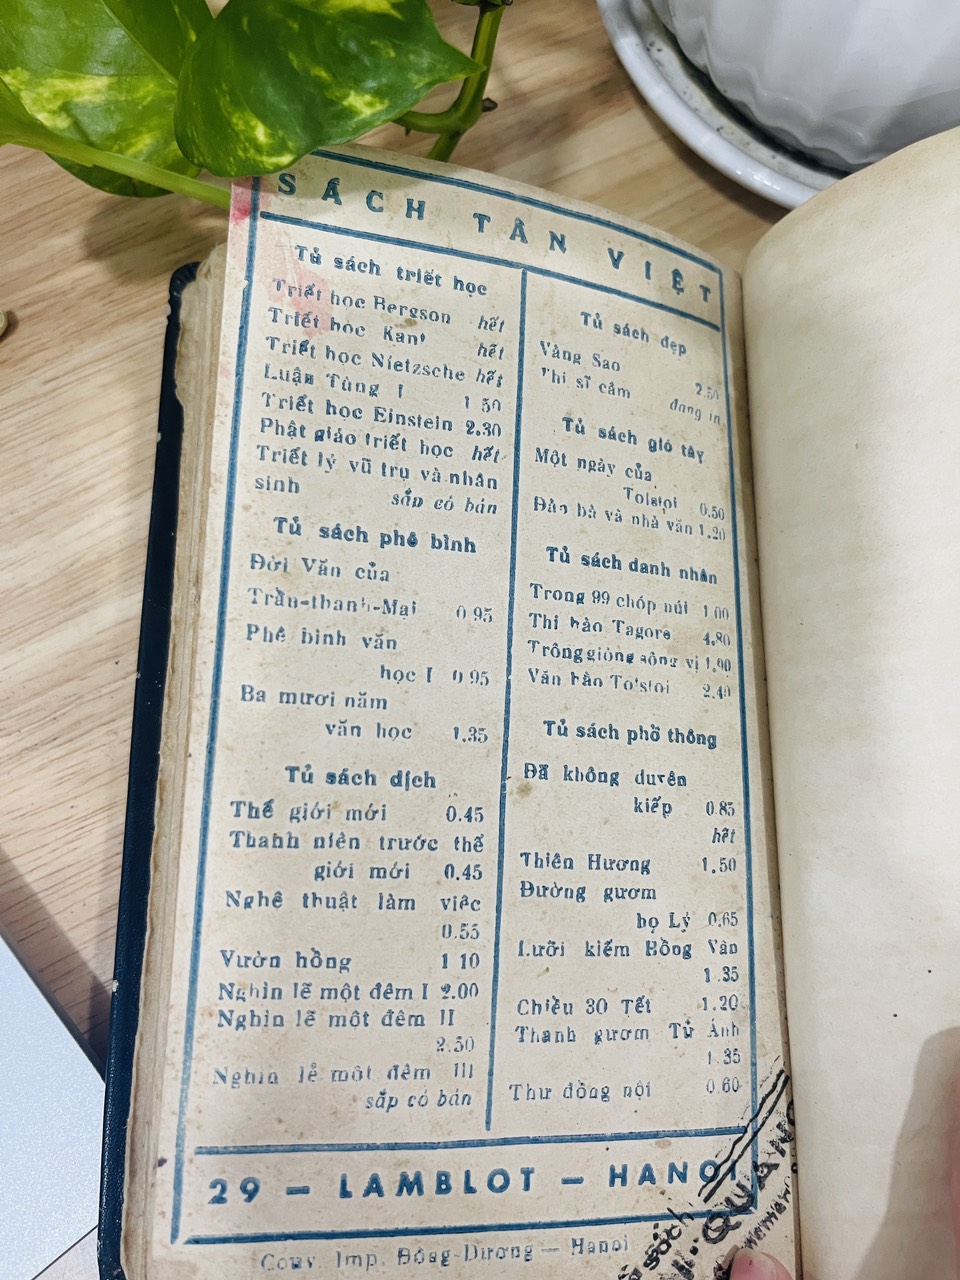 SÁCH TÂN VIỆT
Tủ sách triết học
Triết học Bergson hết
Triết học Kant hết
Triết học Nietzsche hết
Luận Tùng I 1 50
Triết học Einstein 2.30
Phật giáo triết học hết
Triết lý vũ trụ và nhân
sinh sắp có bán
Tủ sách phê bình
Đời Văn của
Trần-thanh-Mại 0.95
Phê bình văn
học I 0 95
Ba mươi năm
văn học 1.35
Tủ sách dịch
Thế giới mới 0.45
Thanh niên trước thế
giới mới 0.45
Nghệ thuật làm việc
0.55
Vườn hồng 1 10
Nghìn lẽ một đêm I 2.00
Nghìn lẽ một đêm II
2.50
Nghìn lẽ một đêm III
sắp có bán
Tủ sách đẹp
Vàng Sao 2.50
Thi sĩ câm đang in
Tủ sách gió tây
Một ngày của
Tolstoi 0.50
Đàn bà và nhà văn 1.20
Tủ sách danh nhân
Trong 99 chóp núi 1 00
Thi hào Tagore 4.80
Trông giòng sông vị 1.90
Văn hào Tolstoi 2.40
Tủ sách phổ thông
Đã không duyên
kiếp 0.85
hết
Thiên Hương 1.50
Đường gươm
họ Lý 0.65
Lưỡi kiếm Hồng Vân
1.35
Chiều 30 Tết 1.20
Thanh gươm Tử Ánh
1.35
Thư đồng nội 0.60
29 — LAMBLOT — HANOI
Couv. Imp. Đông-Dương — Hanoi
sách
QUAN